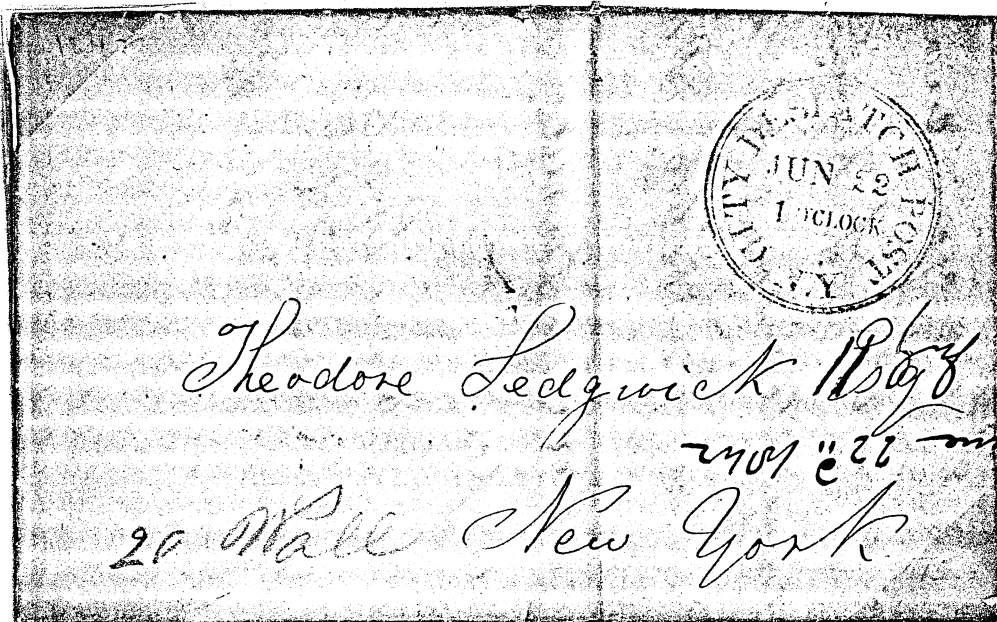 CITY DESPATCH POST N.Y.
JUN 22
1 O'CLOCK
Theodore Sedgwick Esq
20 Wall New York